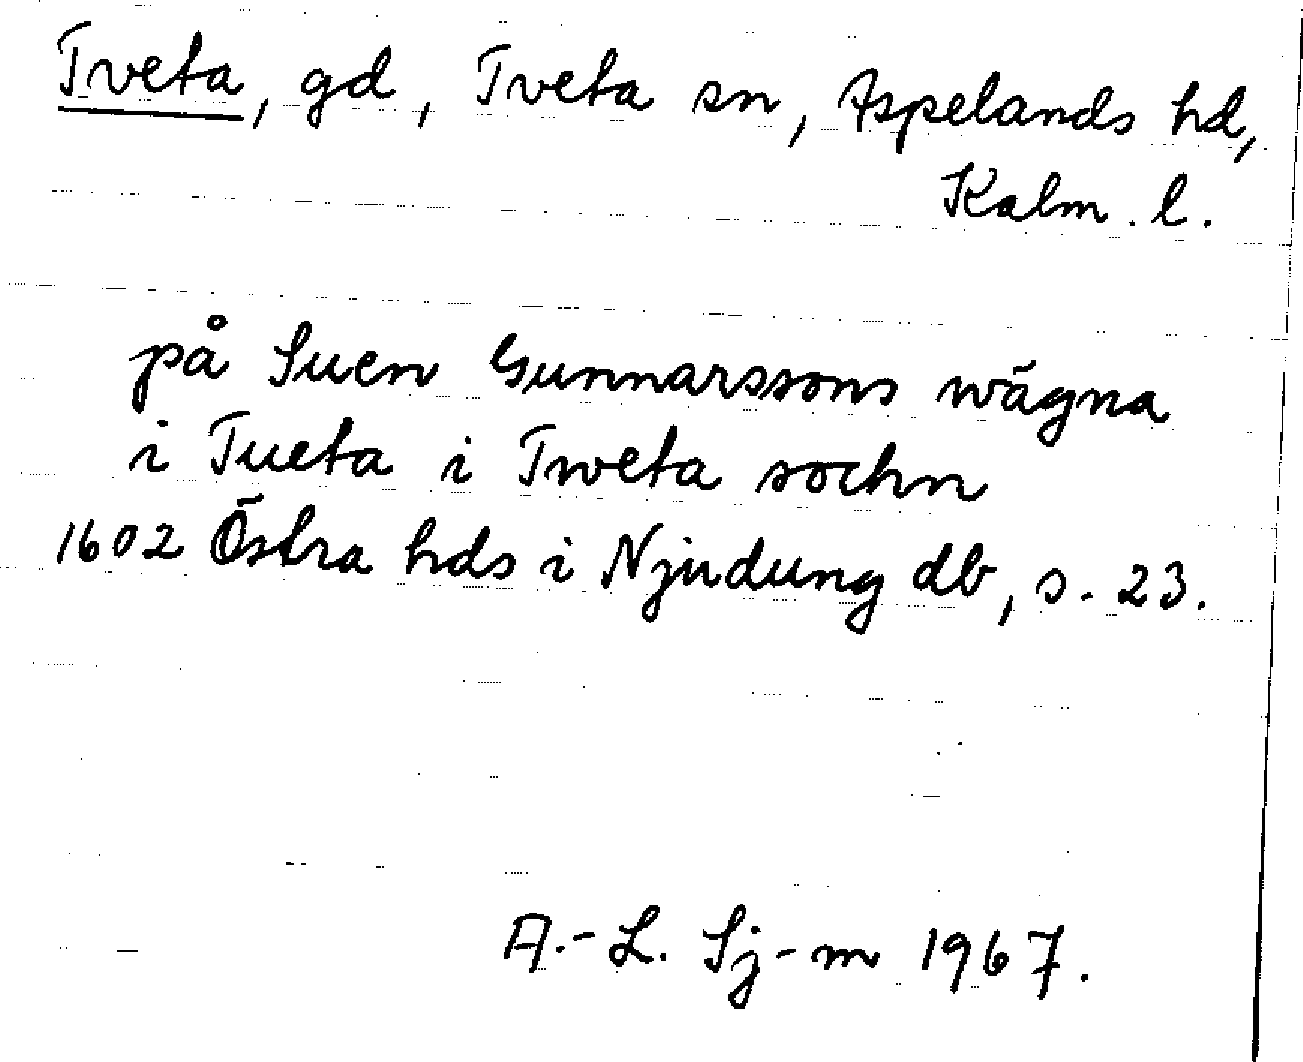 Tveta, gd, Tveta sn, Aspelands hd,
Kalm. l.
på Suen Gunnarssons wägna
i Tueta i Tweta sochn
1602 Östra hds i Njudung db, s. 23.
A.-L. Sj-m 1967.